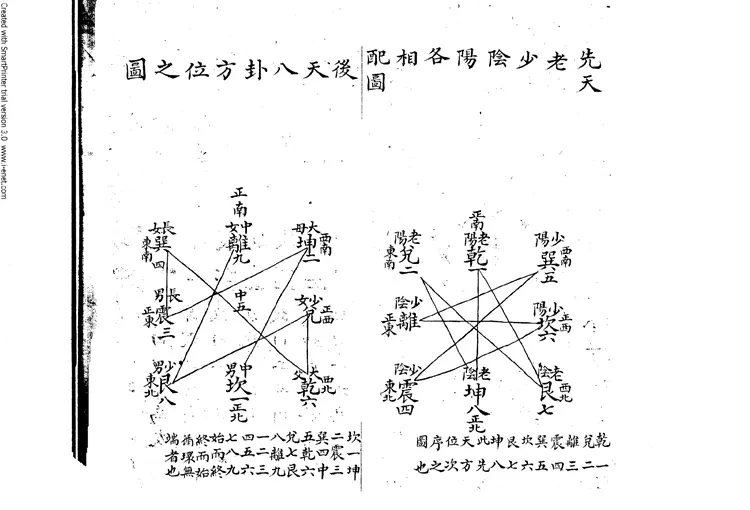 先天老少陰陽各相配圖
正南
老陽乾一
少陽巽五
西南
老陽兌二
東南
少陰離
正東
少陽坎六
正西
少陰震四
東北
老陰坤八
正北
老陰艮七
西北
乾一
兌二
離三
震四
巽五
坎六
艮七
坤八
此先
天方
位次
序之
圖也
後天八卦方位之圖
正南
中女離九
大母坤二
西南
長女巽四
東南
長男震三
正東
中五
少女兌
正西
少男艮八
東北
中男坎一
正北
大父乾六
西北
坎一坤
二震三
巽四中
五乾六
兌七艮
八離九
一二三
四五六
七八九
始而終
終而始
循環無
端者也
Created with SmartPrinter trial version 3.0 www.i-enet.com